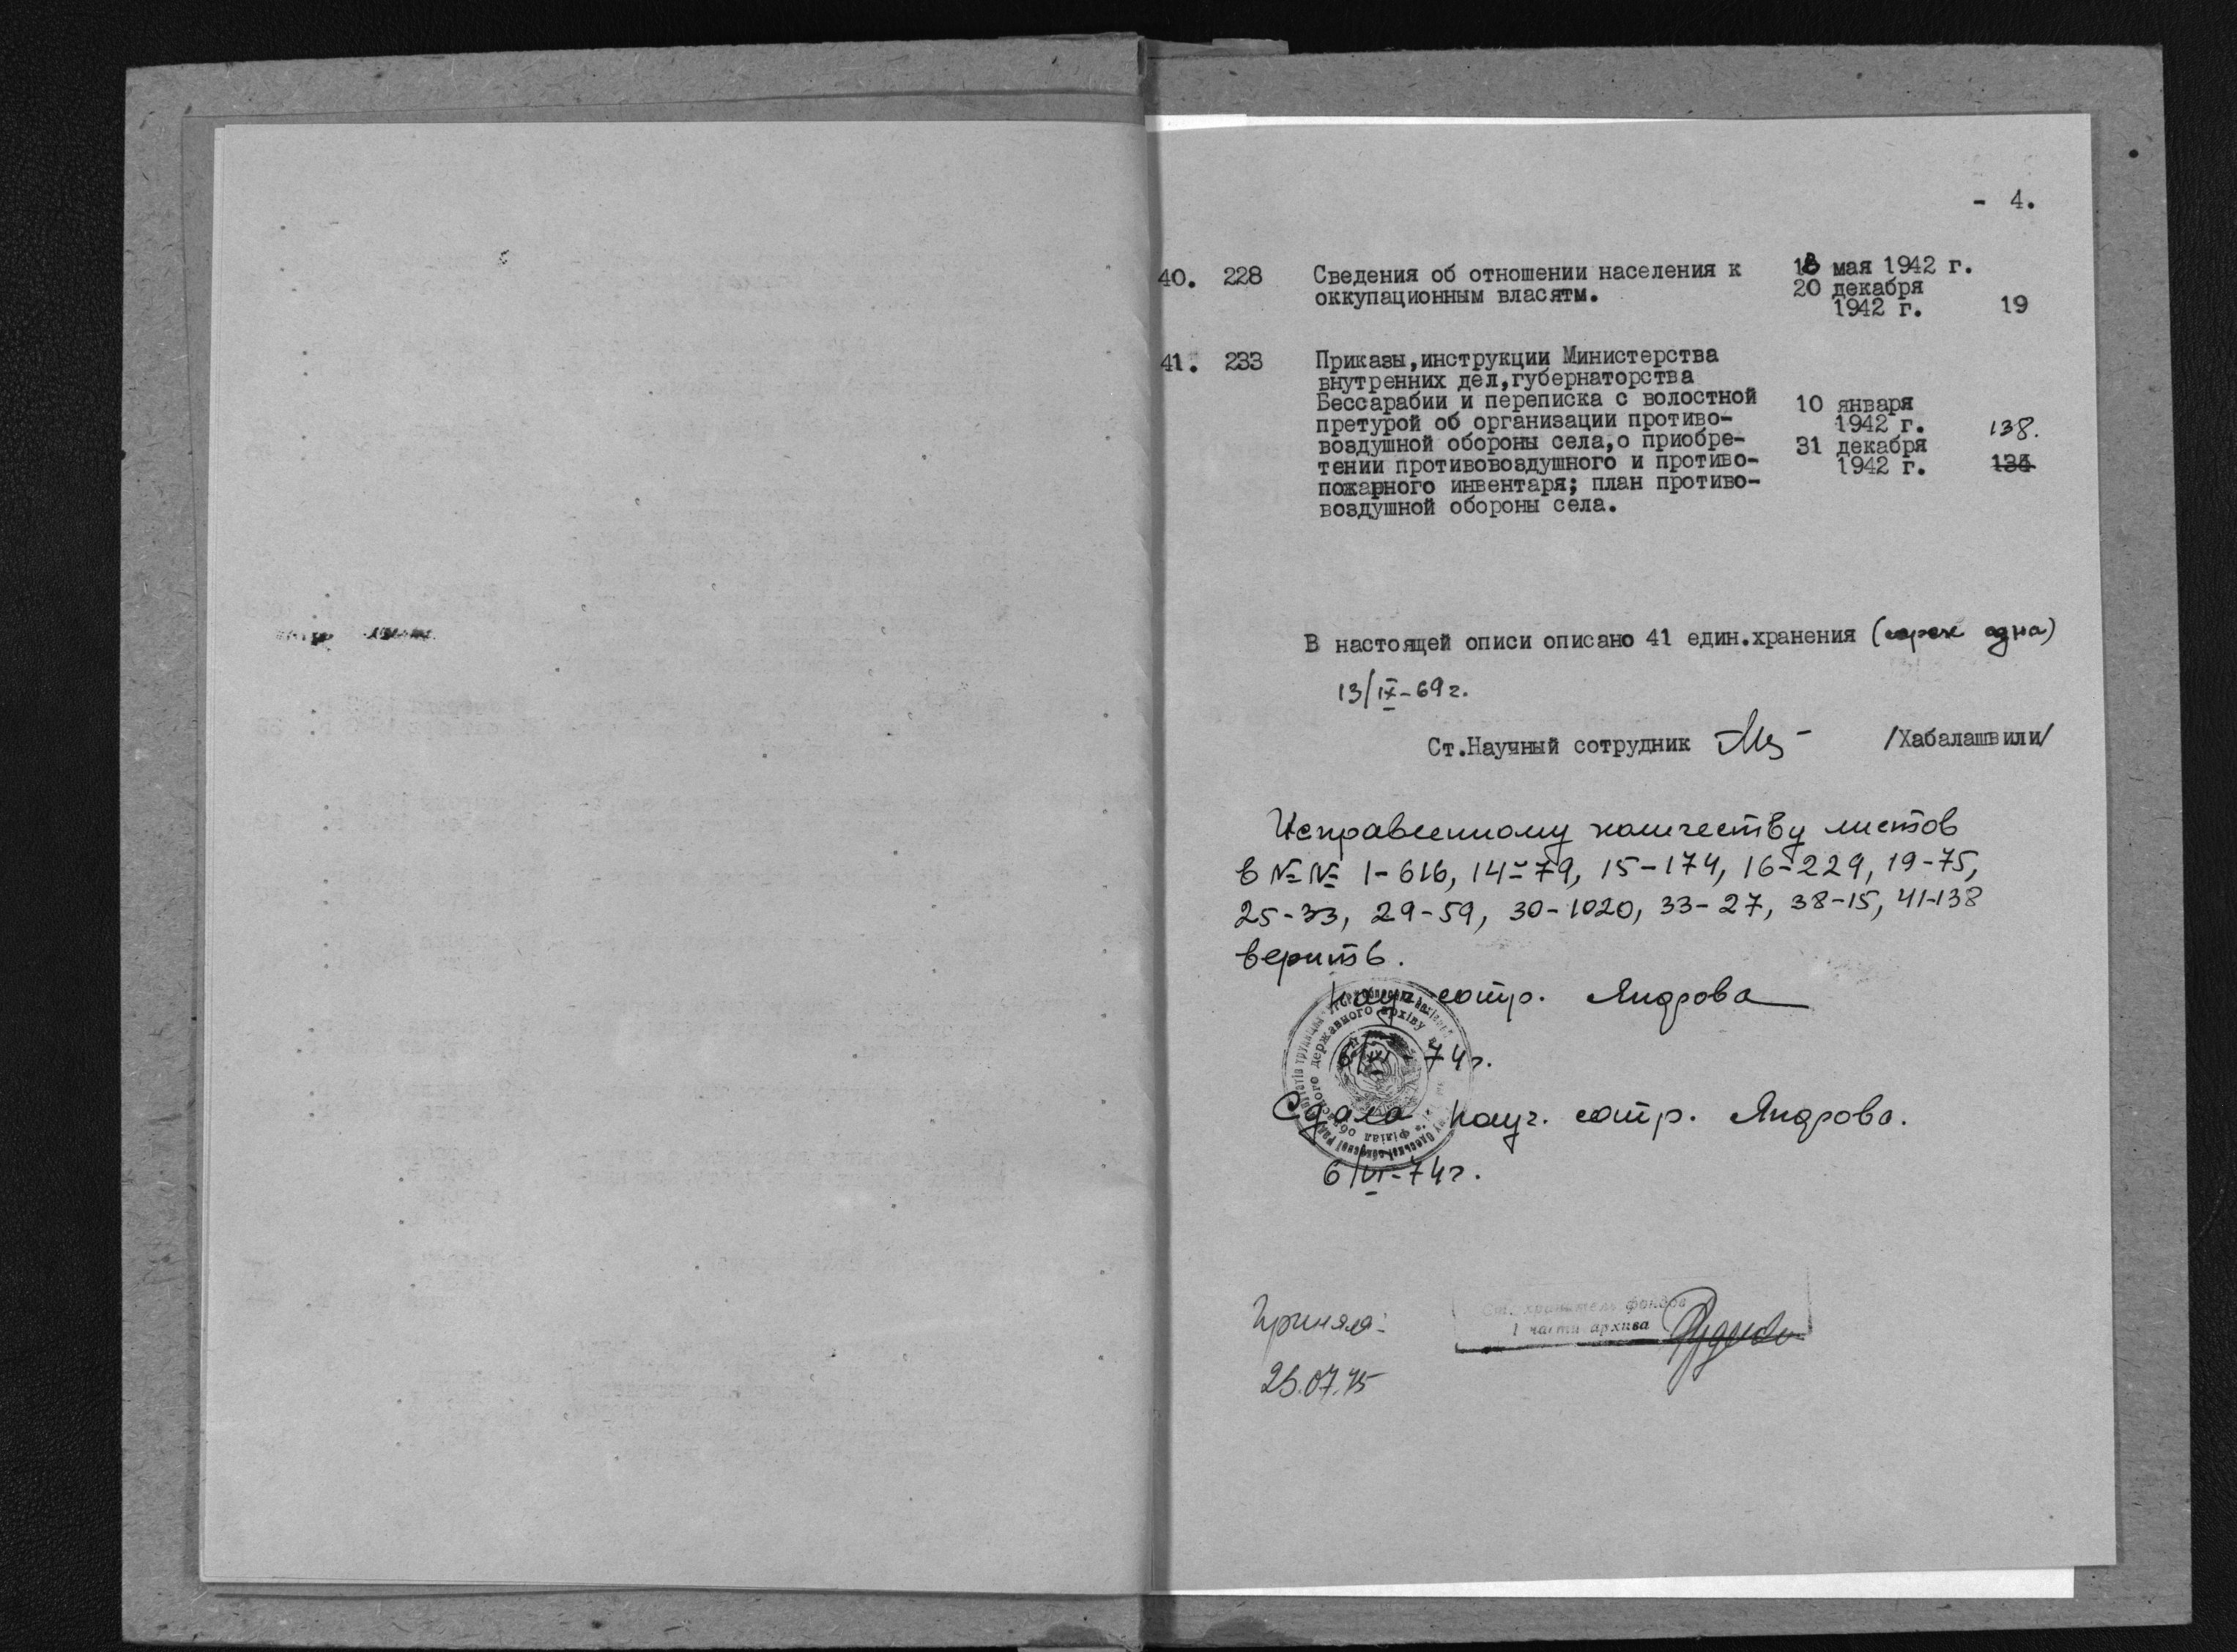 - 4.
40. 228 Сведения об отношении населения к 18 мая 1942 г.
оккупационным власятм. 20 декабря
1942 г. 19
41. 233 Приказы,инструкции Министерства
внутренних дел,губернаторства
Бессарабии и переписка с волостной 10 января
претурой об организации противо- 1942 г. 138.
воздушной обороны села,о приобре- 31 декабря
тении противовоздушного и противо- 1942 г.
пожарного инвентаря; план противо-
воздушной обороны села.
В настоящей описи описано 41 един.хранения (сорок одна)
13/IX-69г.
Ст.Научный сотрудник /Хабалашвили/
Исправленному количеству листов
в №№ 1-616, 14-79, 15-174, 16-229, 19-75,
25-33, 29-59, 30-1020, 33-27, 38-15, 41-138
верить.
Науч. сотр. Яндрова
74г.
Сдала науч. сотр. Яндрова.
6/VI-74г.
державного архіву
Приняла:
Ст. хранитель фондов
1 части архива